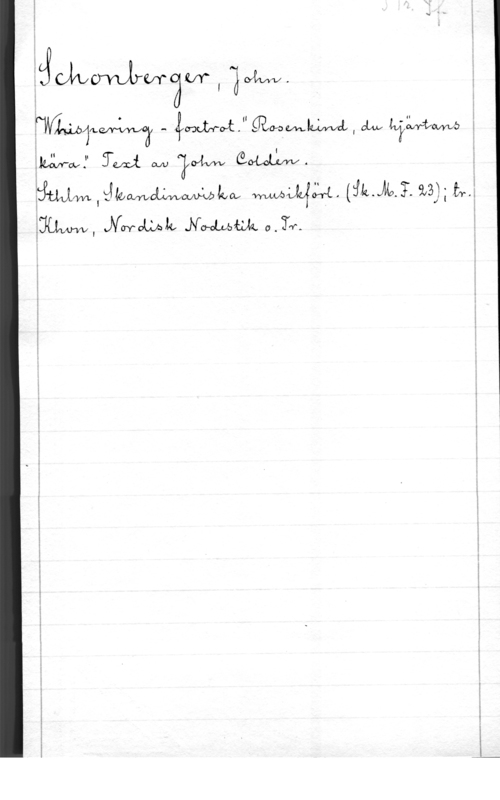 Schonberger, John.
"Whispering - foxtrot." "Rosenkind, du hjärtans
kära." Text av John Coldén.
Sthlm, Skandinaviska musikförl. (Sk. M. F. 23); tr.
Khvn, Nordisk Nodestik o. Tr.